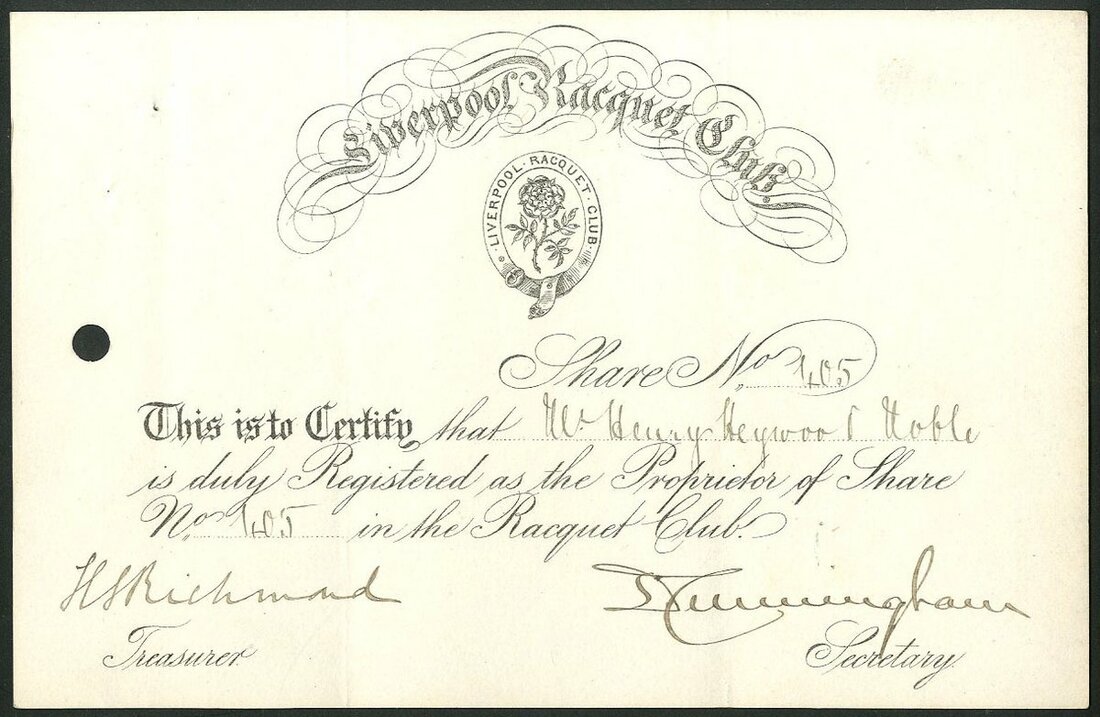 Liverpool Racquet Club.
LIVERPOOL · RACQUET · CLUB
Share No. 405
This is to Certify that Mr Henry Heywood Noble
is duly Registered as the Proprietor of Share
No. 405 in the Racquet Club.
HSRichmond Cunningham
Treasurer Secretary